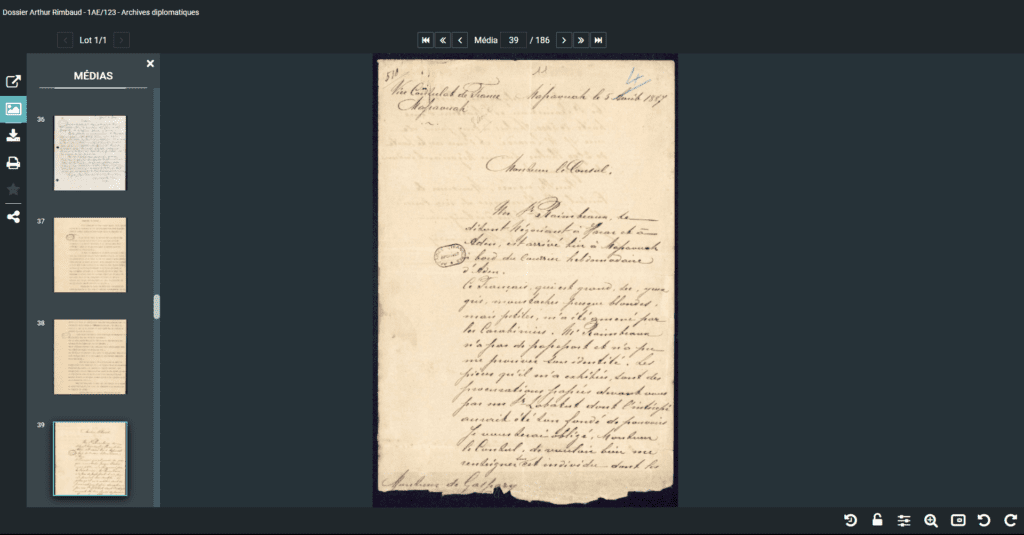 Dossier Arthur Rimbaud - 1AE/123 - Archives diplomatiques
Lot 1/1
Média 39 / 186
MÉDIAS
36
37
38
39
Vice Consulat de France
Massaouah
Massaouah le 5 Août 1887
Monsieur le Consul,
Un Sr Raimbeaux, se
disant Négociant à Harar et à
Aden, est arrivé hier à Massaouah
à bord du Courrier hebdomadaire
d'Aden.
Ce Français, qui est grand, sec, yeux
gris, moustaches presque blondes,
mais petites, m'a été amené par
les Carabiniers. Mr Raimbeaux
n'a pas de passeport et n'a pu
me prouver son identité. Les
pièces qu'il m'a exhibées, sont des
procurations passées devant vous
par un Sr Labatut dont l'intéressé
aurait été son fondé de pouvoirs
Je vous serai obligé, Monsieur
le Consul, de vouloir bien me
renseigner sur cet individu dont les
Monsieur de Gaspary